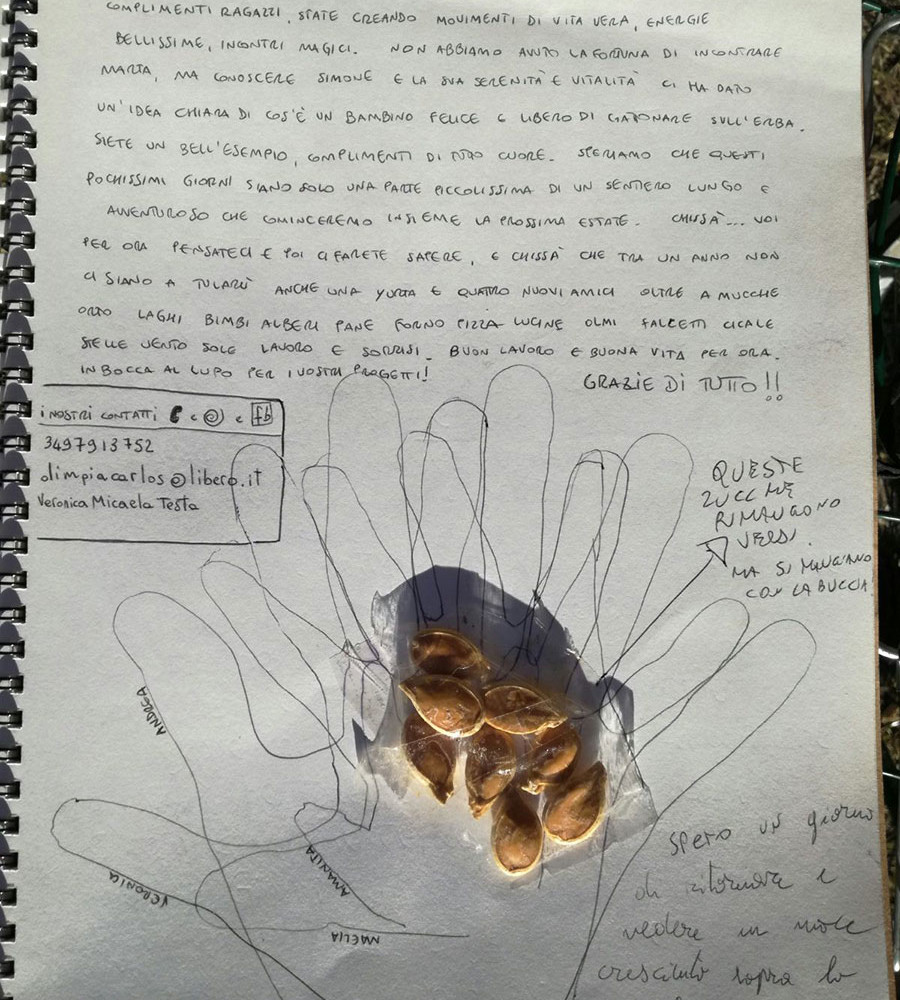 COMPLIMENTI RAGAZZI, STATE CREANDO MOVIMENTI DI VITA VERA, ENERGIE
BELLISSIME, INCONTRI MAGICI. NON ABBIAMO AVUTO LA FORTUNA DI INCONTRARE
MARTA, MA CONOSCERE SIMONE E LA SUA SERENITÀ E VITALITÀ CI HA DATO
UN'IDEA CHIARA DI COS'È UN BAMBINO FELICE E LIBERO DI GATTONARE SULL'ERBA.
SIETE UN BELL'ESEMPIO, COMPLIMENTI DI TUTTO CUORE. SPERIAMO CHE QUESTI
POCHISSIMI GIORNI SIANO SOLO UNA PARTE PICCOLISSIMA DI UN SENTIERO LUNGO E
AVVENTUROSO CHE COMINCEREMO INSIEME LA PROSSIMA ESTATE. CHISSÀ... VOI
PER ORA PENSATECI E POI CI FARETE SAPERE, E CHISSÀ CHE TRA UN ANNO NON
CI SIANO A TULARÙ ANCHE UNA YURTA E QUATTRO NUOVI AMICI OLTRE A MUCCHE
ORTO LAGHI BIMBI ALBERI PANE FORNO PIZZA LUCINE OLMI FALCETTI CICALE
STELLE VENTO SOLE LAVORO E SORRISI. BUON LAVORO E BUONA VITA PER ORA.
IN BOCCA AL LUPO PER I VOSTRI PROGETTI!
GRAZIE DI TUTTO!!
i NOSTRI CONTATTI e @ e fb
3497913752
olimpiacarlos@libero.it
Veronica Micaela Testa
QUESTE
ZUCCHE
RIMANGONO
VERSI.
MA SI MANGIANO
CON LA BUCCIA!
ANDREA
VERONICA
AMANITA
MAELIA
spero un giorno
di ritornare e
vedere un
cresciuto sopra lo